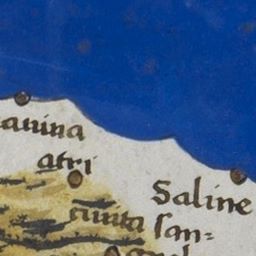 anina
atri
Saline
ciuita san=